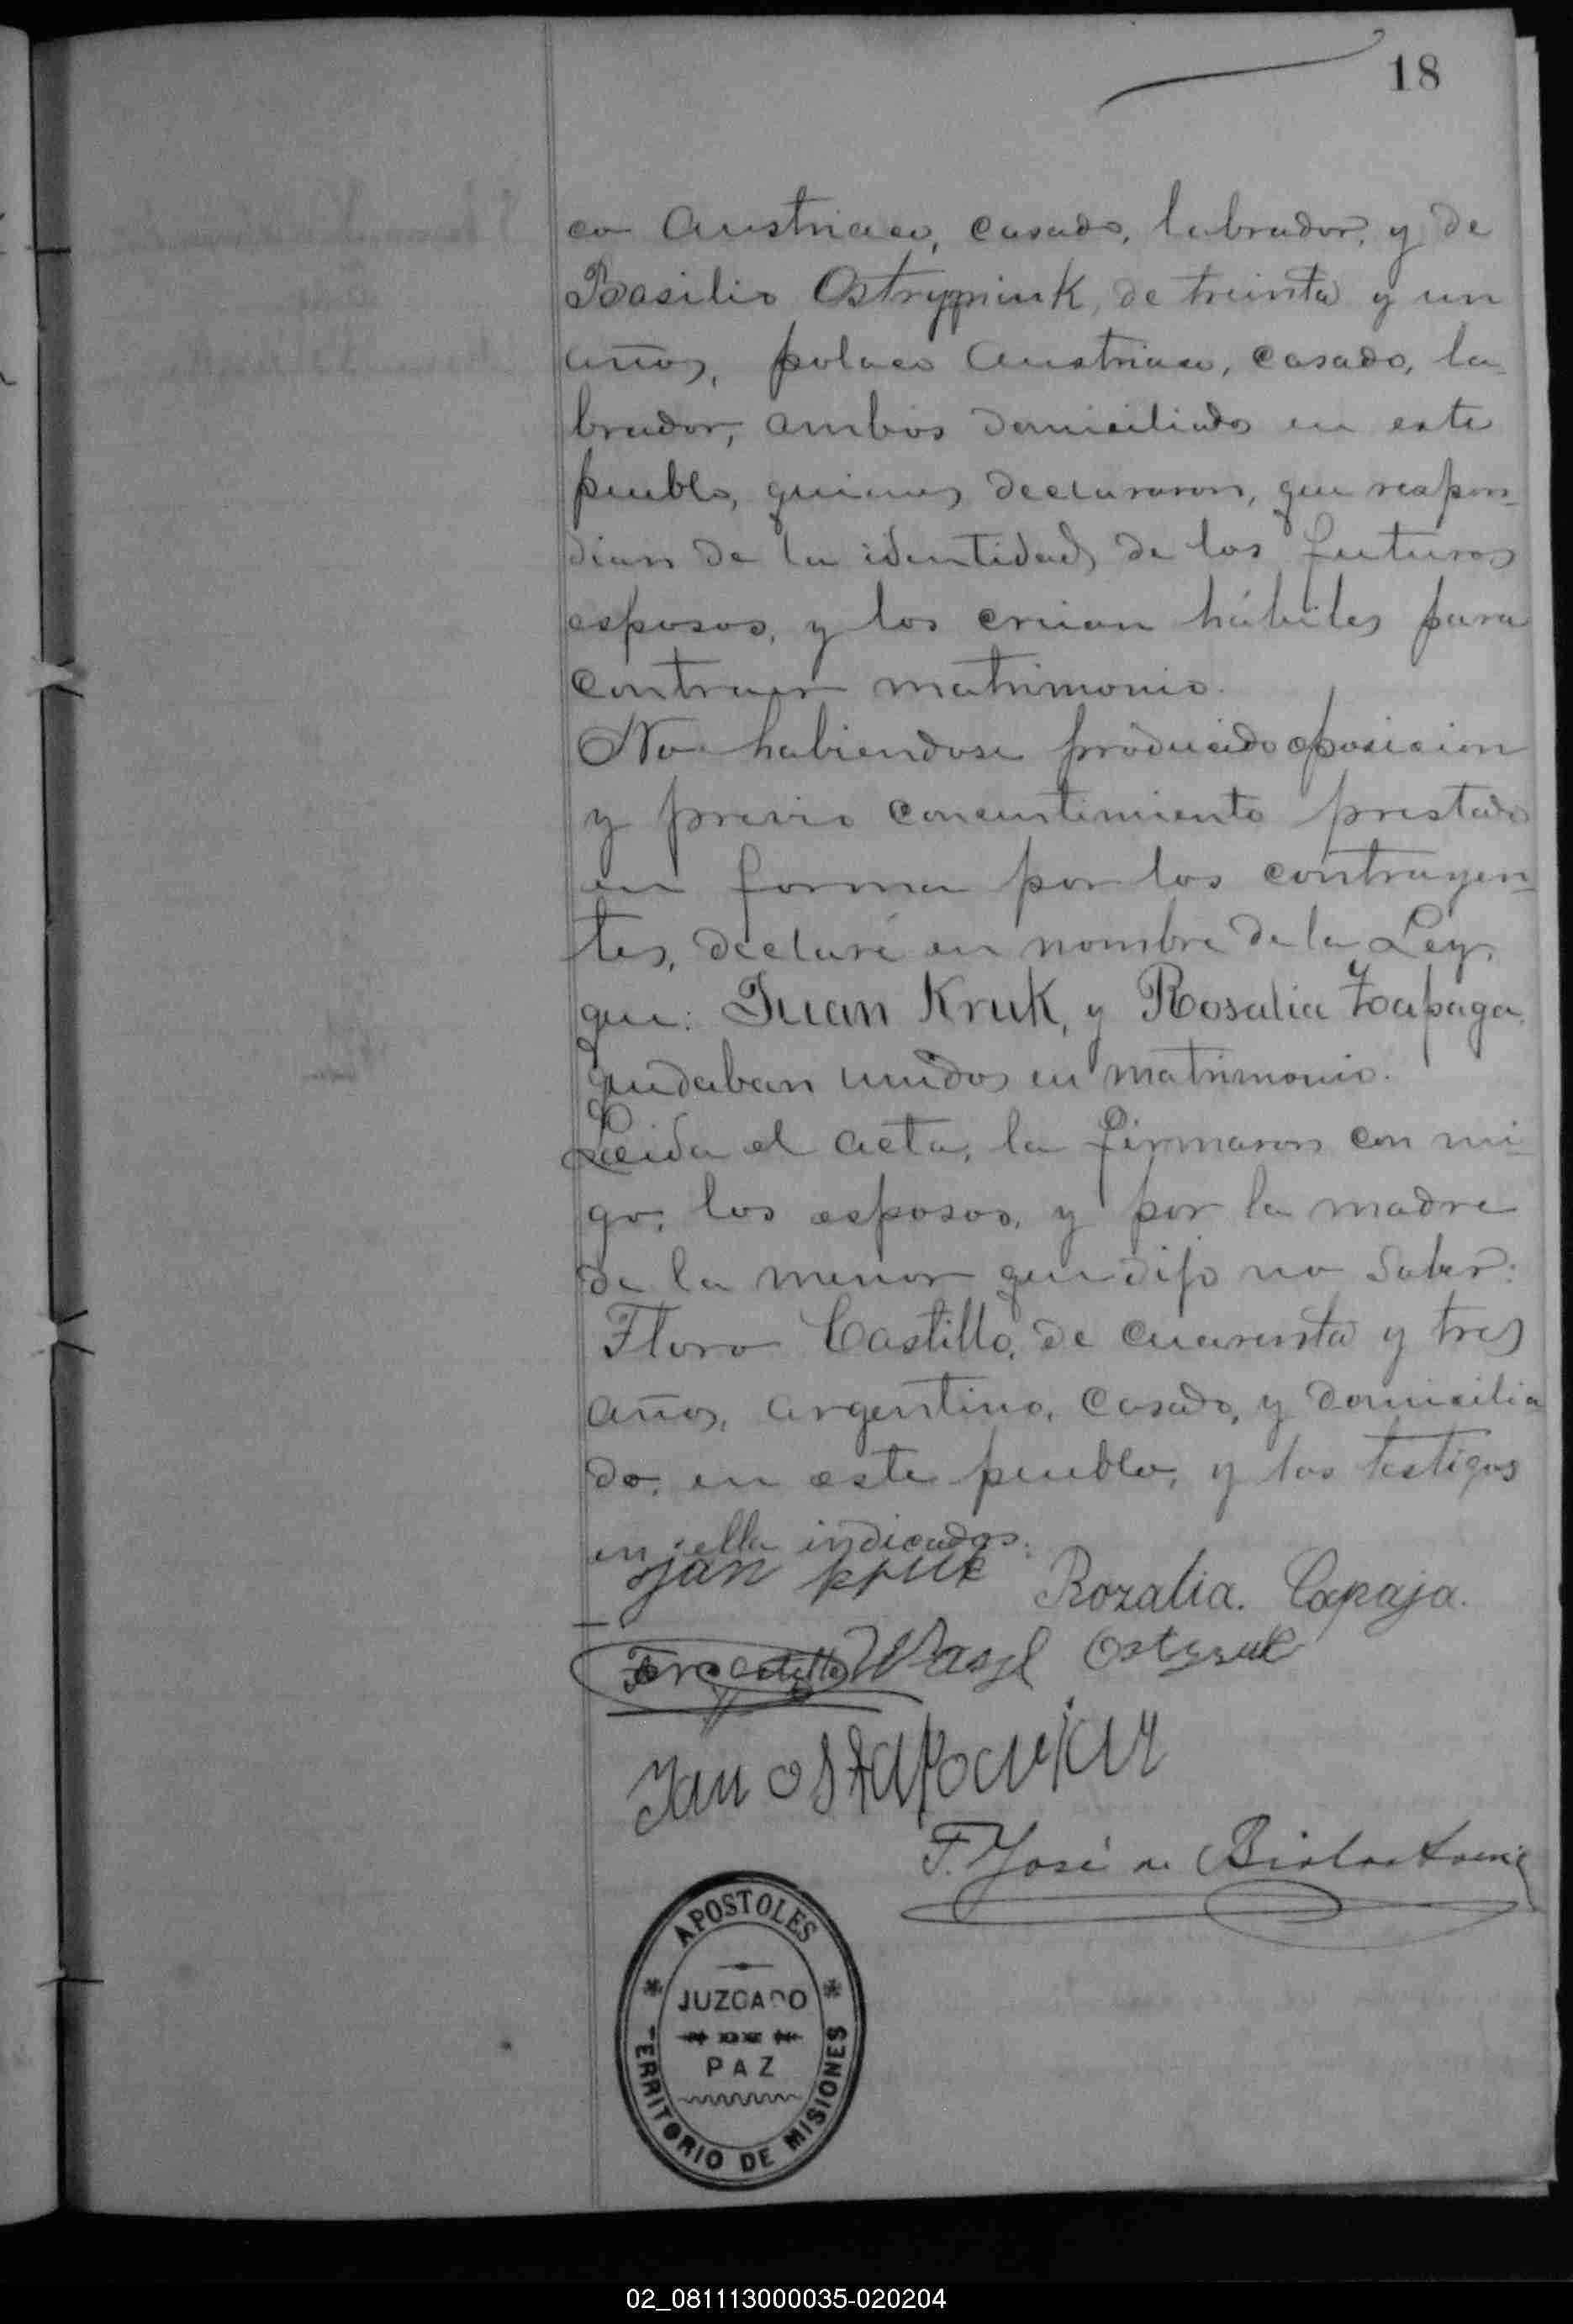 18
co Austriaco, casado, labrador, y de
Basilio Ostrypniuk, de treinta y un
años, polaco Austriaco, casado, la-
brador, ambos domiciliados en este
pueblo, quienes declararon, que respon-
dian de la identidad de los futuros
esposos, y los creian hábiles para
contraer matrimonio.
No habiendose producido oposicion
y previo concentimiento prestado
en forma por los contrayen-
tes, declaré en nombre de la Ley,
que: Juan Kruk, y Rosalia Zapaga
quedaban unidos en matrimonio.
Leida el acta, la firmaron con mi-
go, los esposos, y por la madre
de la menor que dijo no saber:
Floro Castillo, de cuarenta y tres
años, argentino, casado, y domicilia
do, en este pueblo, y los testigos
en ella indicados.
Jan Kruk Rozalia. Capaja.
Wasyl
Jan
F. José de
APOSTOLES
JUZGADO
DE
PAZ
TERRITORIO DE MISIONES
02_081113000035-020204